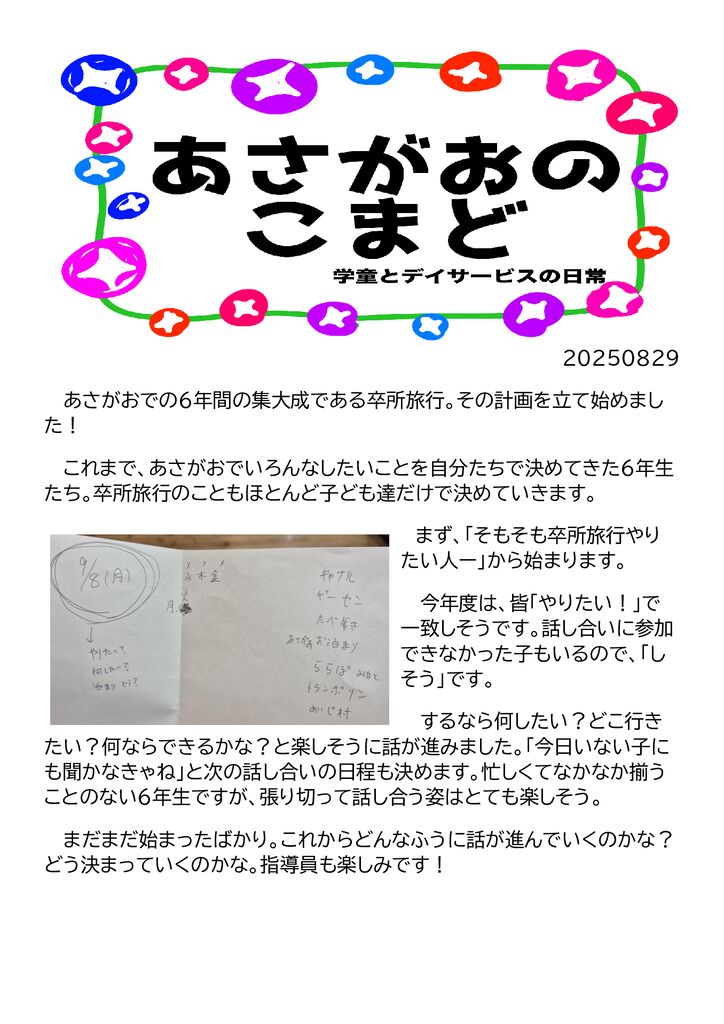 あさがおの
こまど
学童とデイサービスの日常
20250829
あさがおでの６年間の集大成である卒所旅行。その計画を立て始めまし
た！
これまで、あさがおでいろんなしたいことを自分たちで決めてきた６年生
たち。卒所旅行のこともほとんど子ども達だけで決めていきます。
まず、「そもそも卒所旅行やり
たい人ー」から始まります。
今年度は、皆「やりたい！」で
一致しそうです。話し合いに参加
できなかった子もいるので、「し
そう」です。
9/8(月)
水木金
月
やりたい？
何したい？
キャナル
ゲーセン
たべ歩き
お泊まり
ららぽ
トランポリン
めいじ村
するなら何したい？どこ行き
たい？何ならできるかな？と楽しそうに話が進みました。「今日いない子に
も聞かなきゃね」と次の話し合いの日程も決めます。忙しくてなかなか揃う
ことのない６年生ですが、張り切って話し合う姿はとても楽しそう。
まだまだ始まったばかり。これからどんなふうに話が進んでいくのかな？
どう決まっていくのかな。指導員も楽しみです！